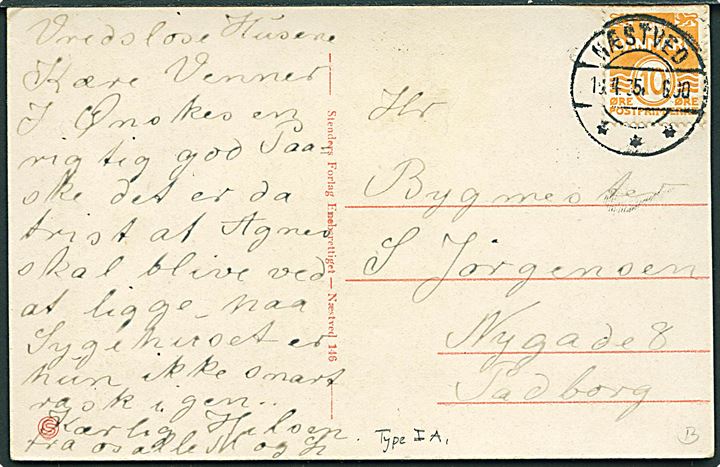 Vredslose Husene
Kære Venner
I Ønskes en
rigtig god Paa-
ske det er da
trist at Agnes
skal blive ved
at ligge paa
Sygehuset er
hun ikke snart
rask igen..
Kærlig Hilsen.
fra os alle M og
Stenders Forlag Eneberettiget — Næstved 146
NÆSTVED
10
ØRE ØRE
Hr
Bygmester
S Jörgensen
Nygade 8
Padborg
Type I A,
B